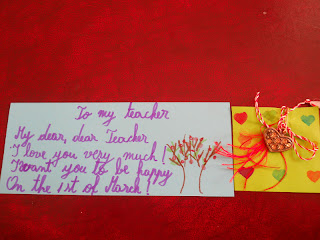 To my teacher
My dear, dear Teacher
I love you very much!
I want you to be happy
On the 1st of March!